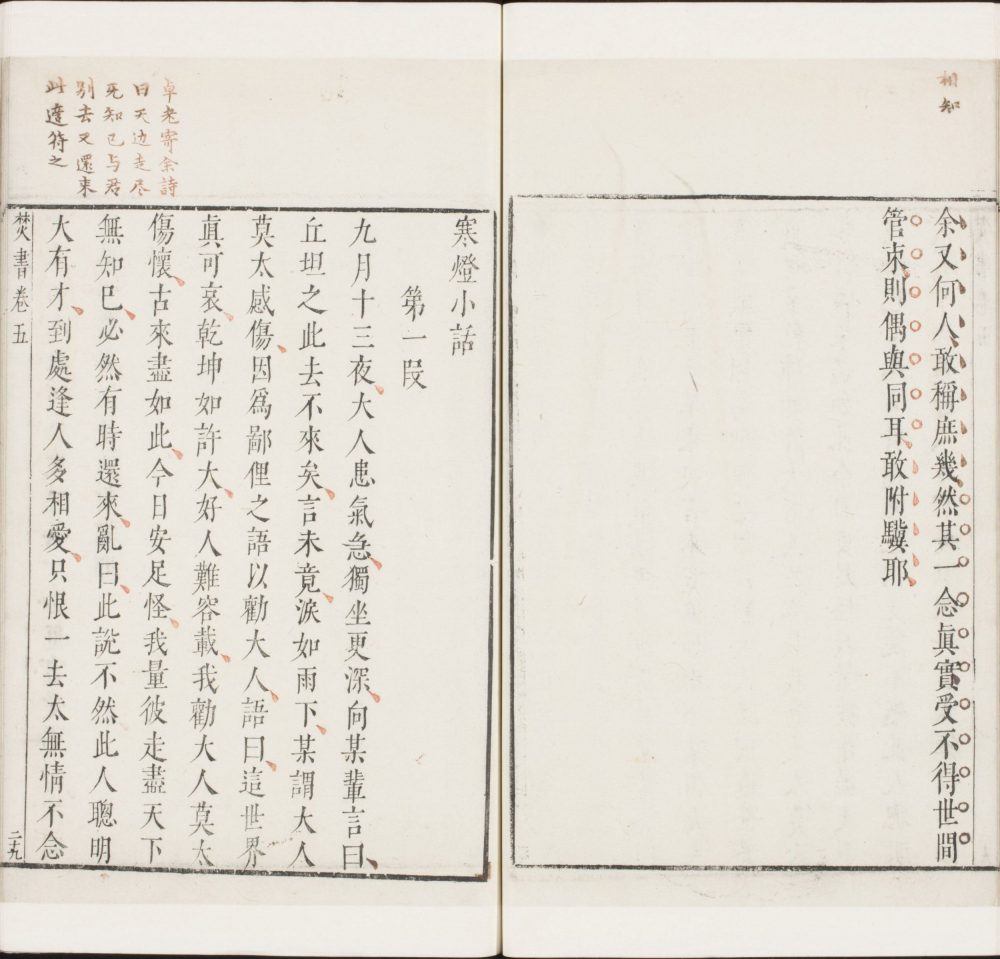 相知
余又何人敢稱庶幾然其一念眞實受不得世間
管束則偶與同耳敢附驥耶
卓老寄余詩
曰天边走尽
死知已与君
别去又還来
此達符之
寒燈小話
第一段
九月十三夜大人患氣急獨坐更深向某輩言曰
丘坦之此去不來矣言未竟淚如雨下某謂大人
莫太感傷因爲鄙俚之語以勸大人語曰這世界
眞可哀乾坤如許大好人難容載我勸大人莫太
傷懷古來盡如此今日安足怪我量彼走盡天下
無知已必然有時還來亂曰此說不然此人聰明
大有才到處逢人多相愛只恨一去太無情不念
焚書卷五
二十九